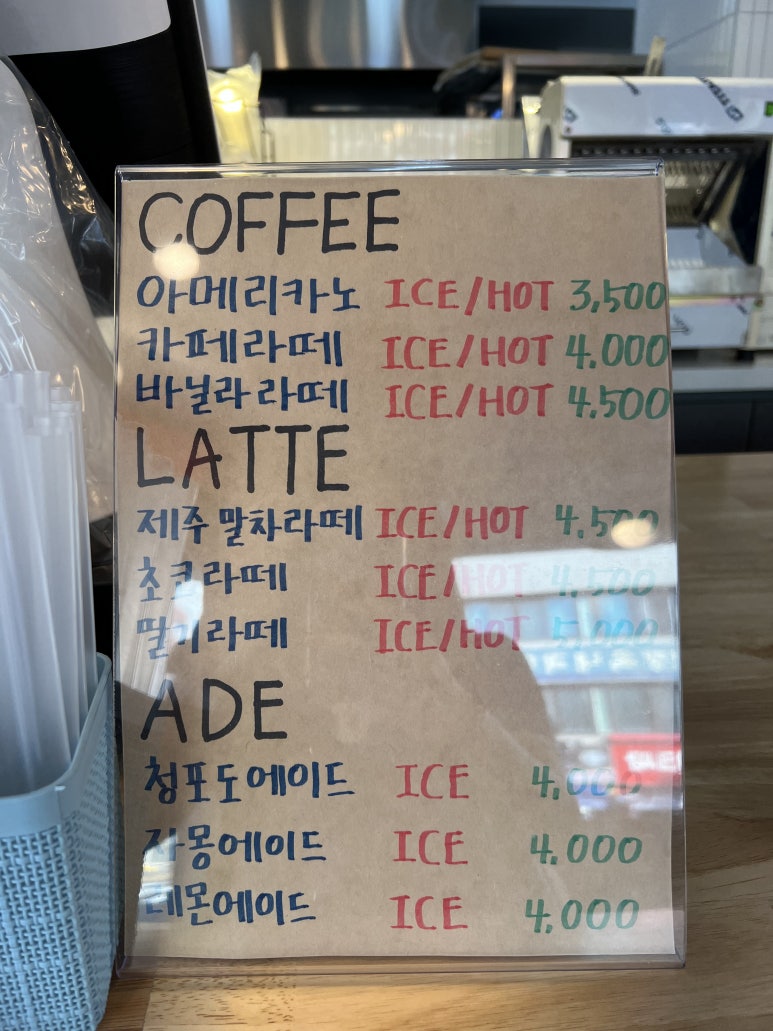 COFFEE
아메리카노 ICE/HOT 3,500
카페라떼 ICE/HOT 4.000
바닐라라떼 ICE/HOT 4.500
LATTE
제주말차라떼 ICE/HOT 4.500
초코라떼 ICE/HOT 4.500
딸기라떼 ICE/HOT 5.000
ADE
청포도에이드 ICE 4,000
자몽에이드 ICE 4.000
레몬에이드 ICE 4.000